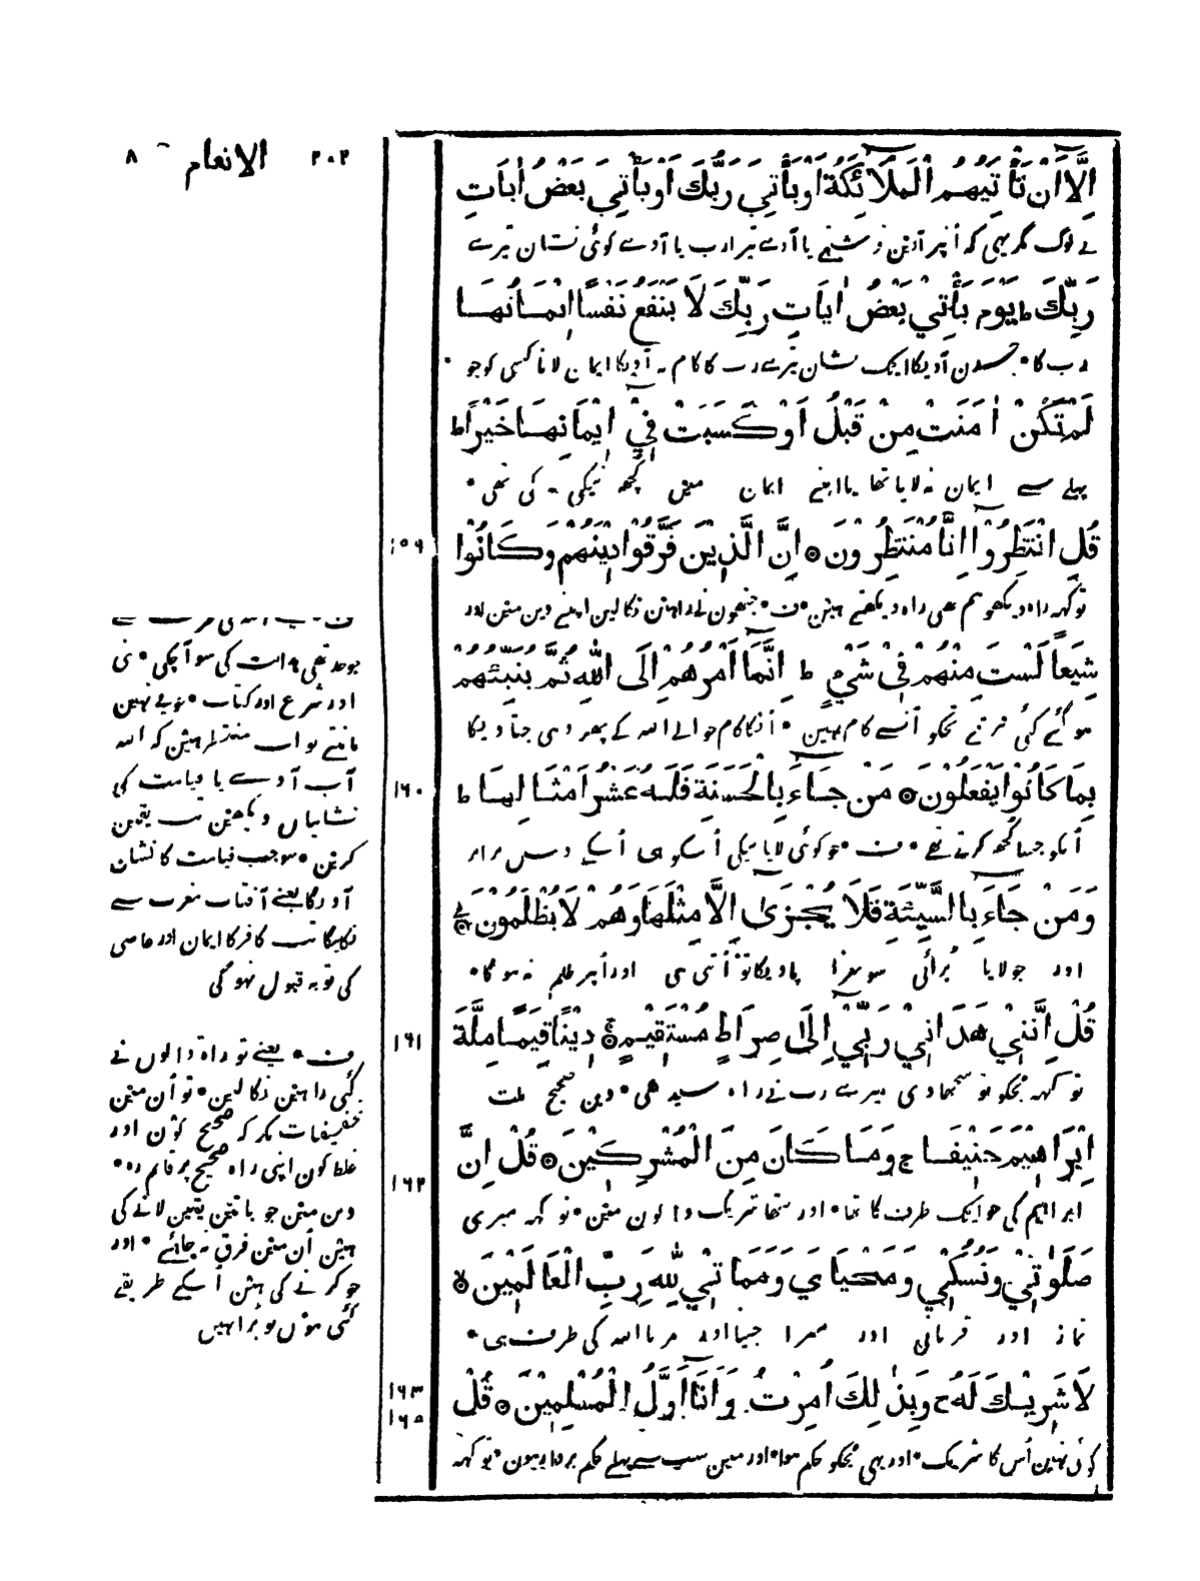 ٢٠٢ الانعام ٨
اِلَّا اَنْ تَأْتِيَهُمُ الْمَلَائِكَةُ اَوْ يَأْتِيَ رَبُّكَ اَوْ يَأْتِيَ بَعْضُ اٰيَاتِ
لوگ مگر یہی کہ اُنپر آوین فرشتے یا آوے تیرا رب یا آوے کوئی نشان تیرے
رَبِّكَ ط يَوْمَ يَأْتِيْ بَعْضُ اٰيَاتِ رَبِّكَ لَا يَنْفَعُ نَفْسًا اِيْمَانُهَا
رب کا • جسدن آویگا ایک نشان تیرے رب کا کام نہ آویگا ایمان لانا کسی کو جو •
لَمْ تَكُنْ اٰمَنَتْ مِنْ قَبْلُ اَوْ كَسَبَتْ فِيْ اِيْمَانِهَا خَيْرًا ط
پہلے سے ایمان نہ لایا تھا یا اپنے ایمان مین کچھ نیکی نہ کی تھی •
١٥٩ قُلِ انْتَظِرُوْا اِنَّا مُنْتَظِرُوْنَ ۝ اِنَّ الَّذِيْنَ فَرَّقُوْا دِيْنَهُمْ وَكَانُوْا
تو کہہ راہ دیکھو ہم بھی راہ دیکھتے ہین • ف • جنھون نے راہین نکالین اپنے دین مین اور
شِيَعًا لَسْتَ مِنْهُمْ فِيْ شَيْءٍ ط اِنَّمَا اَمْرُهُمْ اِلَى اللّٰهِ ثُمَّ يُنَبِّئُهُمْ
ہو گئے کئی فرقے تجکو اُنسے کام نہین • اُنکا کام حوالے اللہ کے پھر وہی جتاویگا
١٦٠ بِمَا كَانُوْا يَفْعَلُوْنَ ۝ مَنْ جَاءَ بِالْحَسَنَةِ فَلَهُ عَشْرُ اَمْثَالِهَا ط
اُنکو جیسا کچھ کرتے تھے • ف • جو کوئی لایا نیکی اُسکو ہی اُسکے دس برابر
وَمَنْ جَاءَ بِالسَّيِّئَةِ فَلَا يُجْزٰى اِلَّا مِثْلَهَا وَهُمْ لَا يُظْلَمُوْنَ ۝
اور جو لایا بُرائی سو سزا پاویگا تو اُتنی ہی اور اُنپر ظلم نہ ہوگا •
١٦١ قُلْ اِنَّنِيْ هَدَانِيْ رَبِّيْ اِلٰى صِرَاطٍ مُسْتَقِيْمٍ ۝ دِيْنًا قِيَمًا مِلَّةَ
تو کہہ مجکو تو سمجھا دی میرے رب نے راہ سیدھی • دین صحیح ملت
١٦٢ اِبْرَاهِيْمَ حَنِيْفًا ج وَمَا كَانَ مِنَ الْمُشْرِكِيْنَ ۝ قُلْ اِنَّ
ابراہیم کی جو ایک طرف کا تھا • اور نتھا شریک والون مین • تو کہہ میری
صَلَوٰتِيْ وَنُسُكِيْ وَمَحْيَايَ وَمَمَاتِيْ لِلّٰهِ رَبِّ الْعَالَمِيْنَ ۝
نماز اور قربانی اور میرا جینا اور مرنا اللہ کی طرف ہی •
١٦٣ ١٦٥ لَا شَرِيْكَ لَهُ ج وَبِذٰلِكَ اُمِرْتُ وَاَنَا اَوَّلُ الْمُسْلِمِيْنَ ۝ قُلْ
کوئی نہین اُس کا شریک • اور یہی مجکو حکم ہوا • اور مین سب سے پہلے حکم بردار ہون • تو کہہ
جو حد تھی ہدایت کی سو آ چکی • نبی
اور شرع اور کتاب • تو بے نہین
مانتے تو اب منتظر ہین کہ اللہ
آپ آوے یا قیامت کی
نشانیاں دیکھین تب یقین
کرین • سو جب قیامت کا نشان
آویگا یعنے آفتاب مغرب سے
نکلیگا تب کافر کا ایمان اور عاصی
کی توبہ قبول نہو گی
ف • یعنے توراۃ والوں نے
کئی راہین نکالین • تو اُن مین
تحقیقات مکر کہ صحیح کون اور
غلط کون اپنی راہ صحیح پر قائم رہ •
دین مین جو باتین یقین لانے کی
ہین اُن مین فرق نچاہئے • اور
جو کرنے کی ہین اُسکے طریقے
کئی ہوں تو برا نہیں